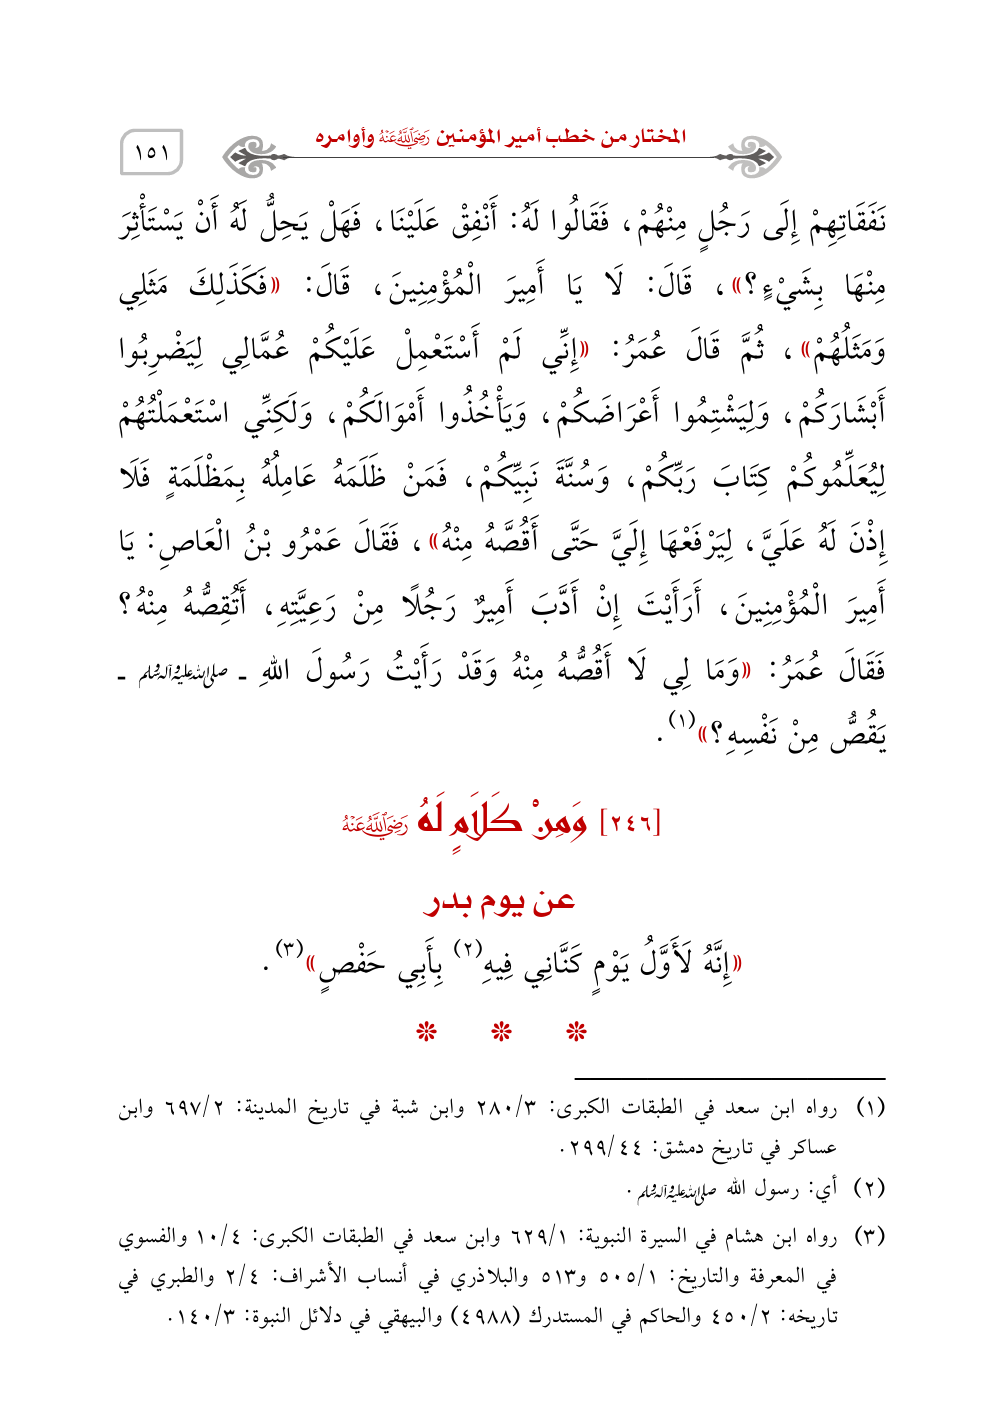 المختار من خطب أمير المؤمنين رَضِيَ اللَّهُ عَنْهُ وأوامره
١٥١
نَفَقَاتِهِمْ إِلَى رَجُلٍ مِنْهُمْ، فَقَالُوا لَهُ: أَنْفِقْ عَلَيْنَا، فَهَلْ يَحِلُّ لَهُ أَنْ يَسْتَأْثِرَ
مِنْهَا بِشَيْءٍ؟»، قَالَ: لَا يَا أَمِيرَ الْمُؤْمِنِينَ، قَالَ: «فَكَذَلِكَ مَثَلِي
وَمَثَلُهُمْ»، ثُمَّ قَالَ عُمَرُ: «إِنِّي لَمْ أَسْتَعْمِلْ عَلَيْكُمْ عُمَّالِي لِيَضْرِبُوا
أَبْشَارَكُمْ، وَلِيَشْتِمُوا أَعْرَاضَكُمْ، وَيَأْخُذُوا أَمْوَالَكُمْ، وَلَكِنِّي اسْتَعْمَلْتُهُمْ
لِيُعَلِّمُوكُمْ كِتَابَ رَبِّكُمْ، وَسُنَّةَ نَبِيِّكُمْ، فَمَنْ ظَلَمَهُ عَامِلُهُ بِمَظْلَمَةٍ فَلَا
إِذْنَ لَهُ عَلَيَّ، لِيَرْفَعْهَا إِلَيَّ حَتَّى أَقُصَّهُ مِنْهُ»، فَقَالَ عَمْرُو بْنُ الْعَاصِ: يَا
أَمِيرَ الْمُؤْمِنِينَ، أَرَأَيْتَ إِنْ أَدَّبَ أَمِيرٌ رَجُلًا مِنْ رَعِيَّتِهِ، أَتُقِصُّهُ مِنْهُ؟
فَقَالَ عُمَرُ: «وَمَا لِي لَا أَقُصُّهُ مِنْهُ وَقَدْ رَأَيْتُ رَسُولَ اللهِ ـ صلى الله عليه وآله وسلم ـ
يَقُصُّ مِنْ نَفْسِهِ؟»(١).
[٢٤٦] وَمِنْ كَلَامٍ لَهُ رَضِيَ اللَّهُ عَنْهُ
عن يوم بدر
«إِنَّهُ لَأَوَّلُ يَوْمٍ كَنَّانِي فِيهِ(٢) بِأَبِي حَفْصٍ»(٣).
(١) رواه ابن سعد في الطبقات الكبرى: ٢٨٠/٣ وابن شبة في تاريخ المدينة: ٦٩٧/٢ وابن
عساكر في تاريخ دمشق: ٢٩٩/٤٤.
(٢) أي: رسول الله صلى الله عليه وآله وسلم.
(٣) رواه ابن هشام في السيرة النبوية: ٦٢٩/١ وابن سعد في الطبقات الكبرى: ١٠/٤ والفسوي
في المعرفة والتاريخ: ٥٠٥/١ و٥١٣ والبلاذري في أنساب الأشراف: ٢/٤ والطبري في
تاريخه: ٤٥٠/٢ والحاكم في المستدرك (٤٩٨٨) والبيهقي في دلائل النبوة: ١٤٠/٣.